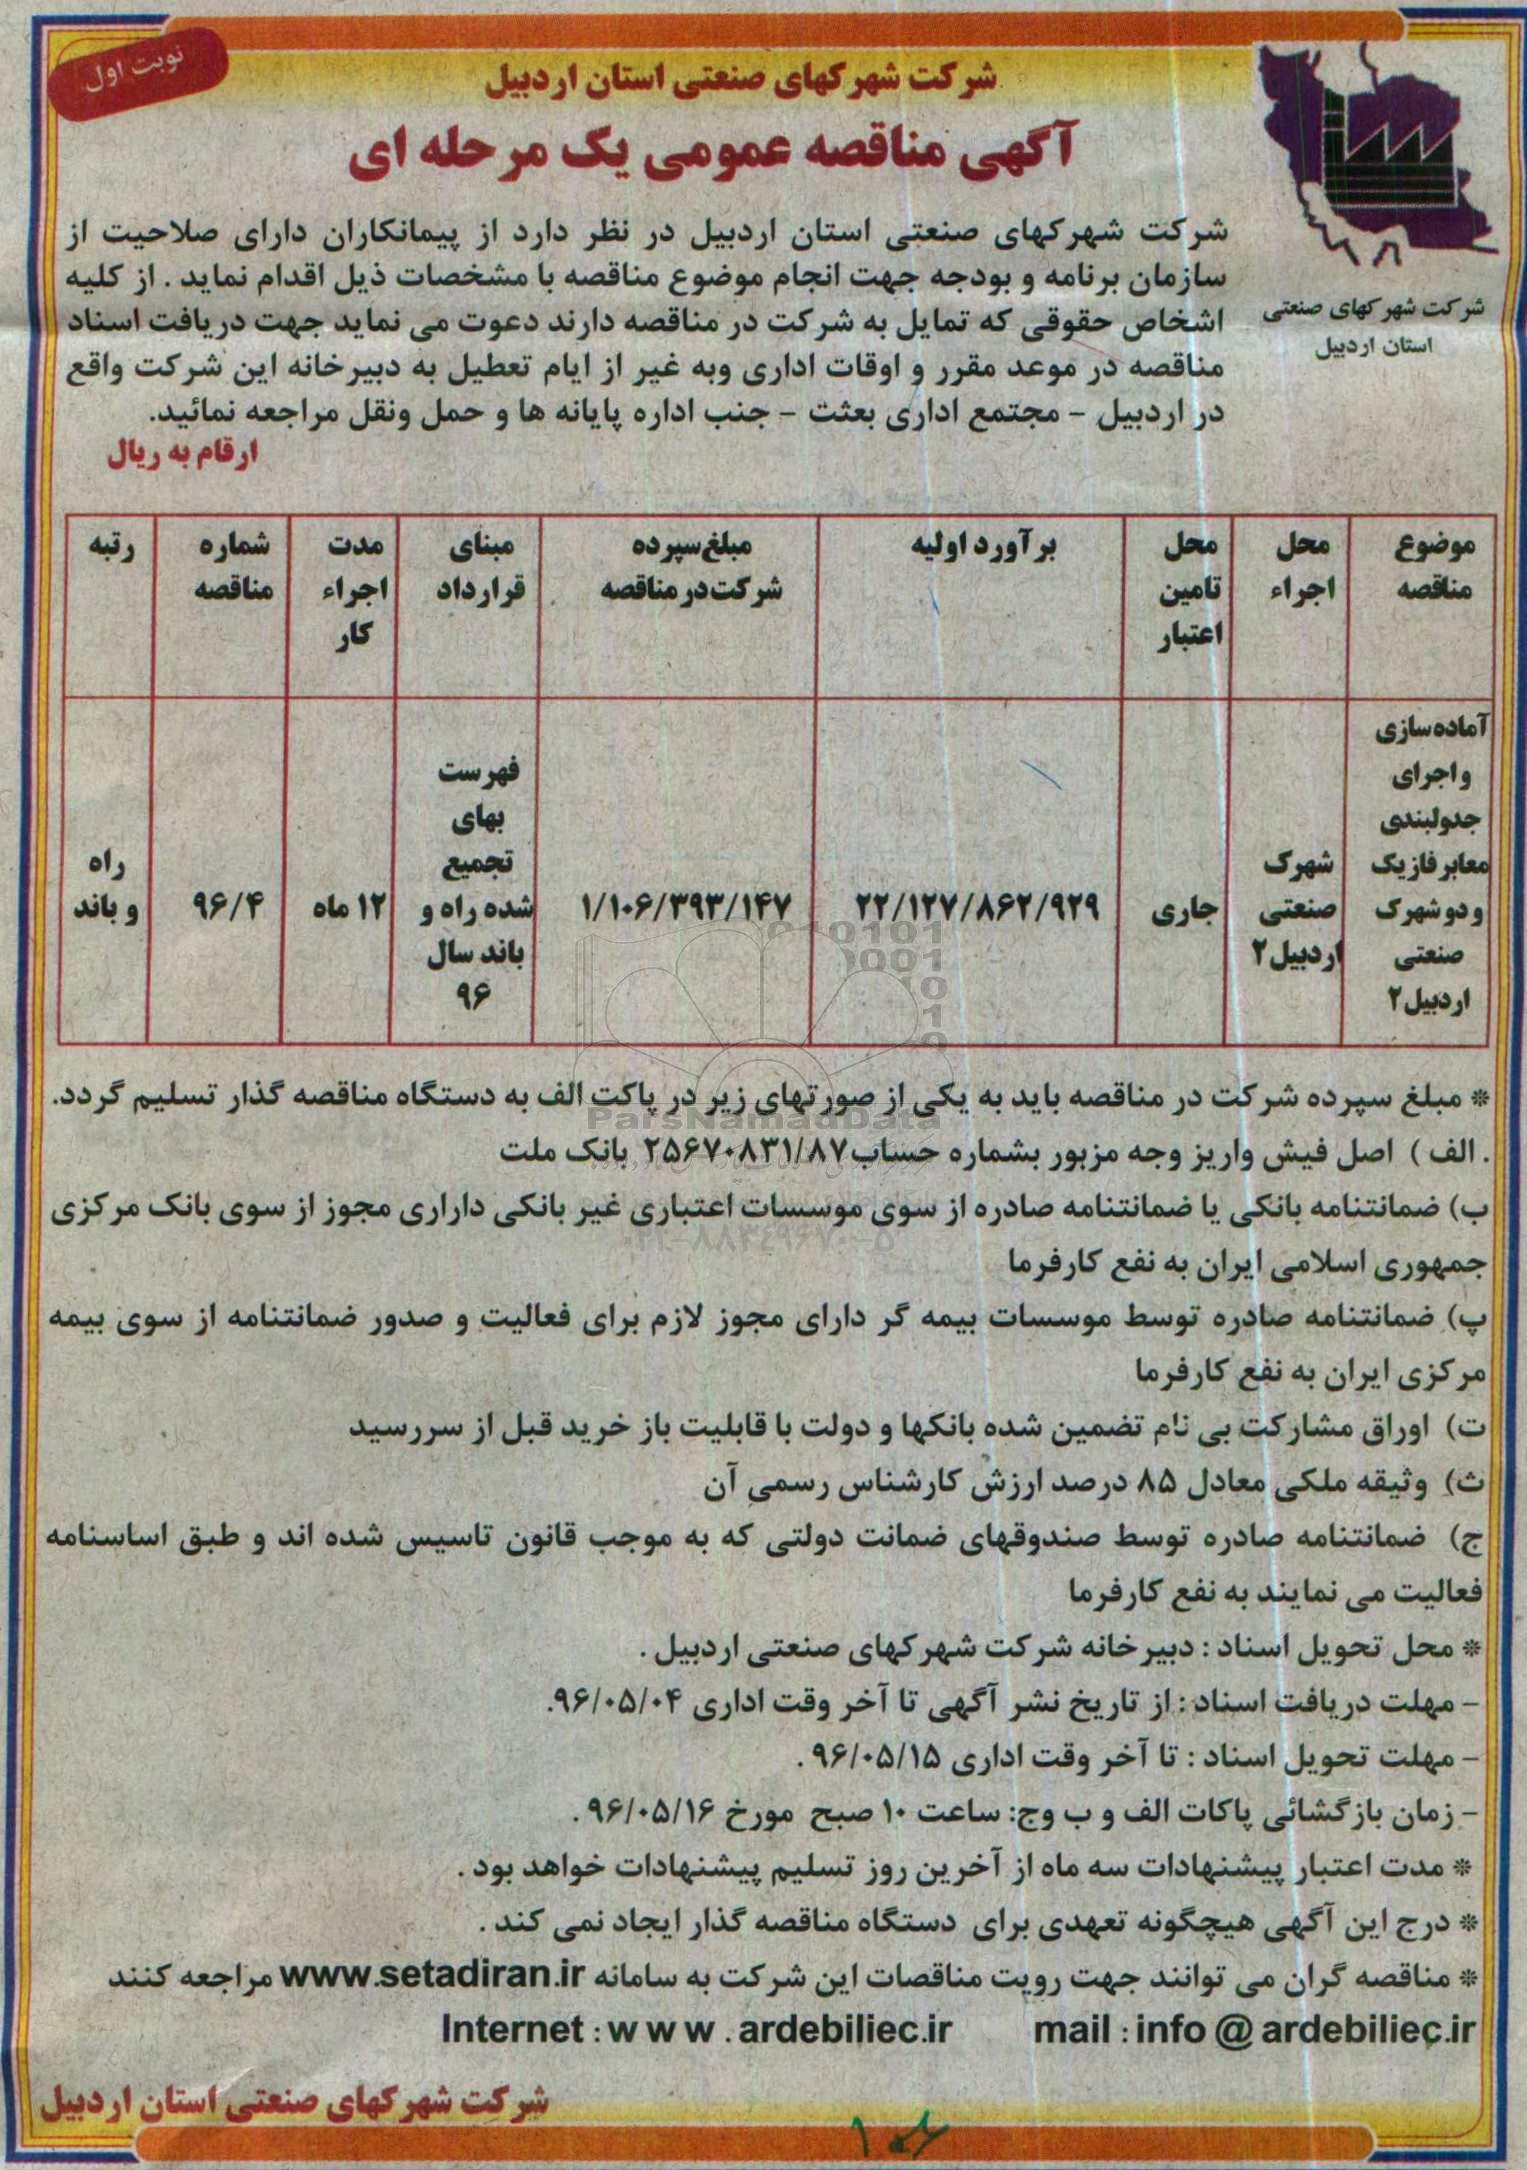 نوبت اول
شرکت شهرکهای صنعتی استان اردبیل
آگهی مناقصه عمومی یک مرحله ای
شرکت شهرکهای صنعتی
استان اردبیل
شرکت شهرکهای صنعتی استان اردبیل در نظر دارد از پیمانکاران دارای صلاحیت از
سازمان برنامه و بودجه جهت انجام موضوع مناقصه با مشخصات ذیل اقدام نماید . از کلیه
اشخاص حقوقی که تمایل به شرکت در مناقصه دارند دعوت می نماید جهت دریافت اسناد
مناقصه در موعد مقرر و اوقات اداری وبه غیر از ایام تعطیل به دبیرخانه این شرکت واقع
در اردبیل - مجتمع اداری بعثت - جنب اداره پایانه ها و حمل ونقل مراجعه نمائید.
ارقام به ریال
موضوع
مناقصه
محل
اجراء
محل
تامین
اعتبار
برآورد اولیه
مبلغ سپرده
شرکت در مناقصه
مبنای
قرارداد
مدت
اجراء
کار
شماره
مناقصه
رتبه
آماده سازی
و اجرای
جدولبندی
معابر فاز یک
و دو شهرک
صنعتی
اردبیل۲
شهرک
صنعتی
اردبیل۲
جاری
۲۲/۱۲۷/۸۶۲/۹۲۹
۱/۱۰۶/۳۹۳/۱۴۷
فهرست
بهای
تجمیع
شده راه و
باند سال
۹۶
۱۲ ماه
۹۶/۴
راه
و باند
* مبلغ سپرده شرکت در مناقصه باید به یکی از صورتهای زیر در پاکت الف به دستگاه مناقصه گذار تسلیم گردد.
. الف ) اصل فیش واریز وجه مزبور بشماره حساب۲۵۶۷۰۸۳۱/۸۷ بانک ملت
ب) ضمانتنامه بانکی یا ضمانتنامه صادره از سوی موسسات اعتباری غیر بانکی داراری مجوز از سوی بانک مرکزی
جمهوری اسلامی ایران به نفع کارفرما
پ) ضمانتنامه صادره توسط موسسات بیمه گر دارای مجوز لازم برای فعالیت و صدور ضمانتنامه از سوی بیمه
مرکزی ایران به نفع کارفرما
ت) اوراق مشارکت بی نام تضمین شده بانکها و دولت با قابلیت باز خرید قبل از سررسید
ث) وثیقه ملکی معادل ۸۵ درصد ارزش کارشناس رسمی آن
ج) ضمانتنامه صادره توسط صندوقهای ضمانت دولتی که به موجب قانون تاسیس شده اند و طبق اساسنامه
فعالیت می نمایند به نفع کارفرما
* محل تحویل اسناد : دبیرخانه شرکت شهرکهای صنعتی اردبیل .
- مهلت دریافت اسناد : از تاریخ نشر آگهی تا آخر وقت اداری ۹۶/۰۵/۰۴.
- مهلت تحویل اسناد : تا آخر وقت اداری ۹۶/۰۵/۱۵ .
- زمان بازگشائی پاکات الف و ب وج: ساعت ۱۰ صبح مورخ ۹۶/۰۵/۱۶ .
* مدت اعتبار پیشنهادات سه ماه از آخرین روز تسلیم پیشنهادات خواهد بود .
* درج این آگهی هیچگونه تعهدی برای دستگاه مناقصه گذار ایجاد نمی کند .
* مناقصه گران می توانند جهت رویت مناقصات این شرکت به سامانه www.setadiran.ir مراجعه کنند
Internet : w w w . ardebiliec.ir mail : info @ ardebiliec.ir
شرکت شهرکهای صنعتی استان اردبیل
ParsNamadData
۰۲۱-۸۸۳۴۹۶۷۰-۵